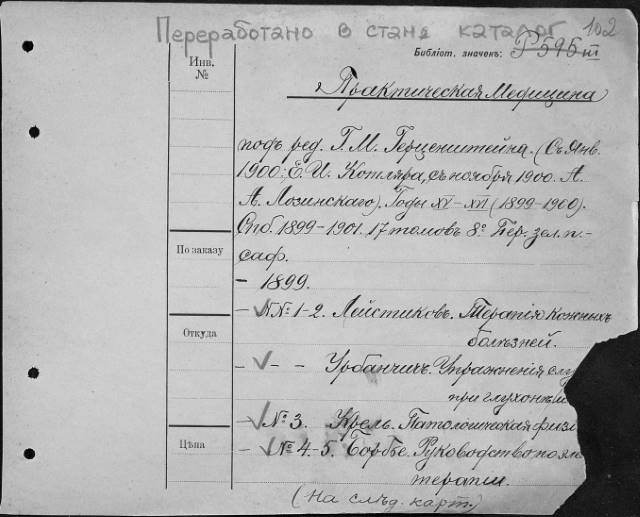 Переработано в стан. каталог 102
Библіот. значекъ: P 595 III
Инв. №
Практическая Медицина
подъ ред. Г. М. Герценштейна. (Съ Янв.
1900: Е. И. Котляра, съ ноября 1900. А.
А. Лозинскаго). Годы XV–XVI (1899–1900).
Спб. 1899–1901. 17 томовъ 8º. Пер. зел. п.-
По заказу
саф.
– 1899.
– №№ 1–2. Лейстиковъ. Терапія кожныхъ
болѣзней.
Откуда
– – – Урбанчичъ. Упражненія слу
при глухонѣм
– № 3. Крель. Патологическая физ
Цѣна
– № 4–5. Борбье. Руководство по
терапіи.
(На слѣд. карт.)